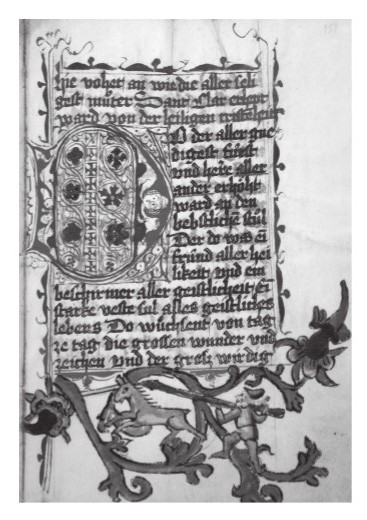 hie vohet an wie die aller seli
gest muter Sant Clar erhept
ward von der heiligen cristenheit
O der aller gne
digest fürst
vnd herre aller
ander erhöht
ward an den
bebstlichen stůl
Der do was ein
fründ aller hei
likeit vnd ein
beschirmer aller geistlicheit Er
starke veste sul alles geistliches
lebens Do wůchsent von tag
ze tag die grossen wunder vnd
zeichen vnd der gross wirdig